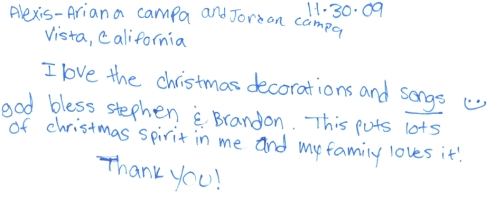 Alexis-Ariana campa and Jordan campa 11.30.09
Vista, California
I love the christmas decorations and songs :)
god bless stephen & Brandon. This puts lots
of christmas spirit in me and my family loves it!
Thank you!